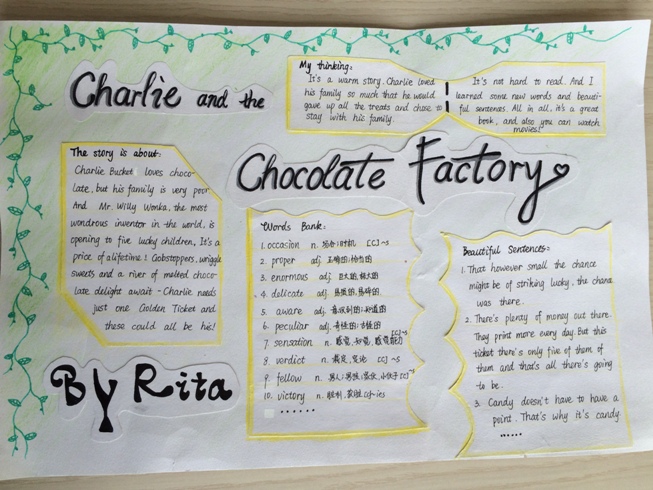 Charlie and the
Chocolate Factory
My thinking:
It's a warm story. Charlie loved
his family so much that he would
gave up all the treats and chose to
stay with his family.
It's not hard to read. And I
learned some new words and beauti-
ful sentences. All in all, it's a great
book, and also you can watch
movies!
The story is about:
Charlie Bucket loves choco-
late, but his family is very poor
And Mr. Willy Wonka, the most
wondrous inventor in the world, is
opening to five lucky children, It's a
price of a lifetime! Gobstoppers, wriggle
sweets and a river of melted choco-
late delight await - Charlie needs
just one Golden Ticket and
these could all be his!
Words Bank:
1. occasion n. 场合;时机 [C]~s
2. proper adj. 正确的;恰当的
3. enormous adj. 巨大的,极大的
4. delicate adj. 易损的,易碎的
5. aware adj. 意识到的;知道的
6. peculiar adj. 奇怪的;古怪的
7. sensation n. 感觉,知觉,感觉能力 [C]~s
8. verdict n. 裁定,定论 [C]~s
9. fellow n. 男人;男孩;家伙,小伙子 [C]~s
10. victory n. 胜利,获胜 [C]-ies
......
Beautiful Sentences:
1. That however small the chance
might be of striking lucky, the chance
was there.
2. There's plenty of money out there.
They print more every day. But this
ticket there's only five of them of
them and that's all there's going
to be.
3. Candy doesn't have to have a
point. That's why it's candy
......
By Rita